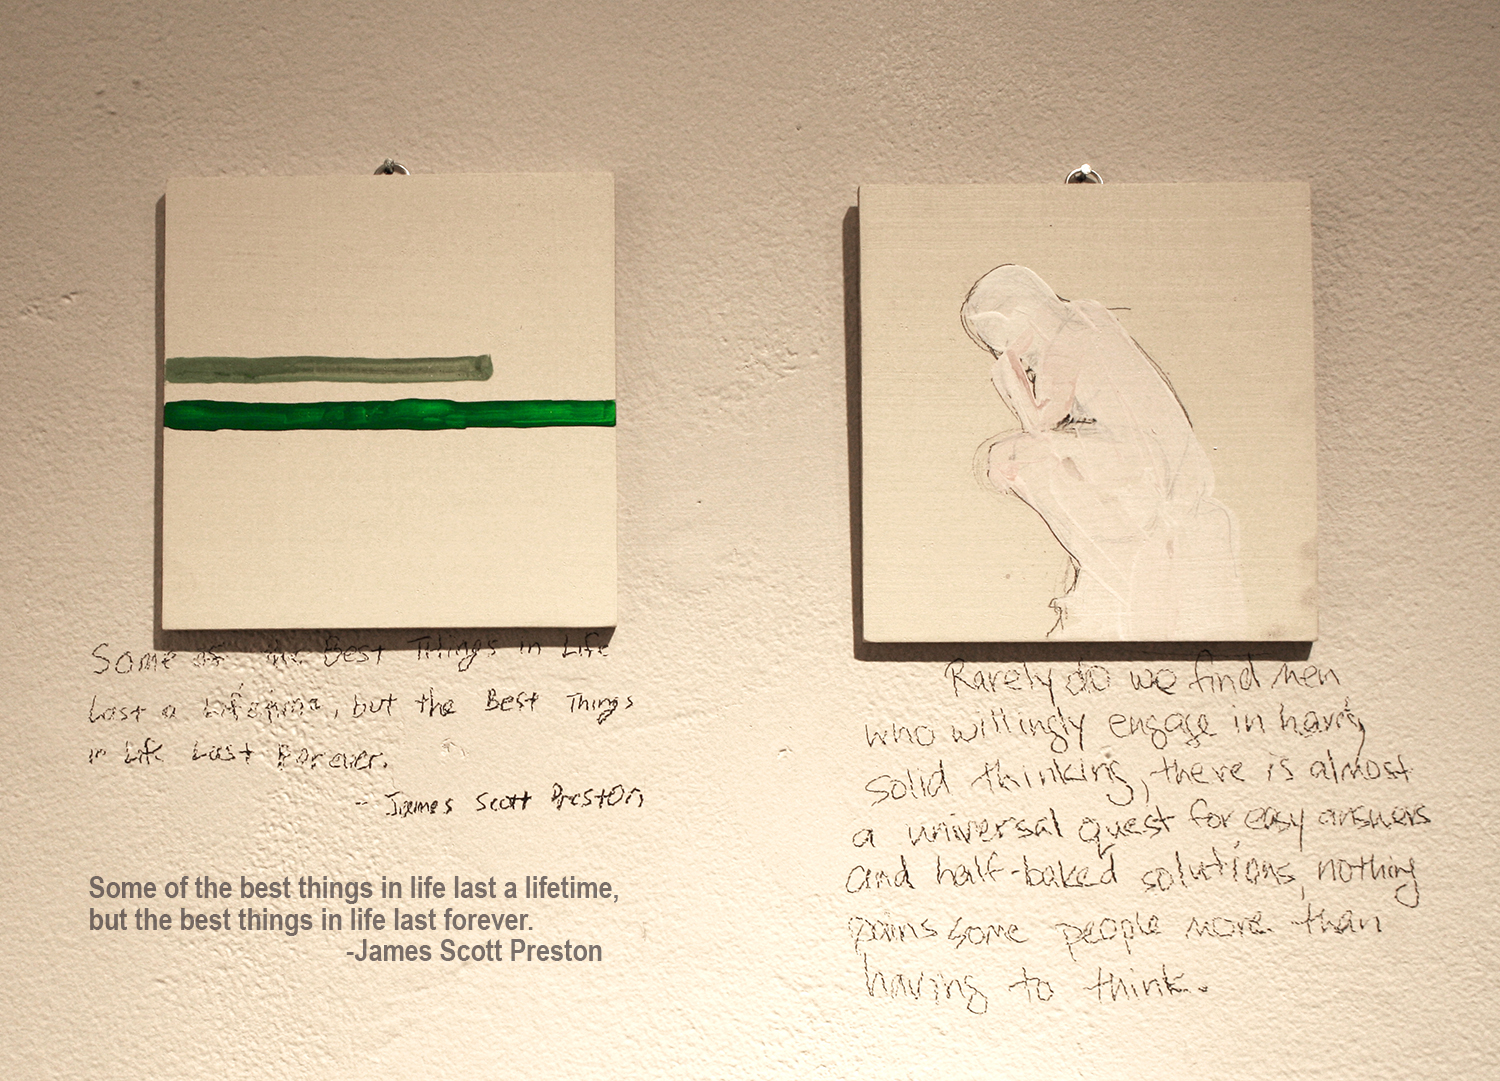 Some of the Best Things in Life
Last a Lifetime, but the Best Things
in Life Last Forever.
- James Scott Preston
Some of the best things in life last a lifetime,
but the best things in life last forever.
-James Scott Preston
Rarely do we find men
who willingly engage in hard,
solid thinking, there is almost
a universal quest for easy answers
and half-baked solutions, nothing
pains some people more than
having to think.